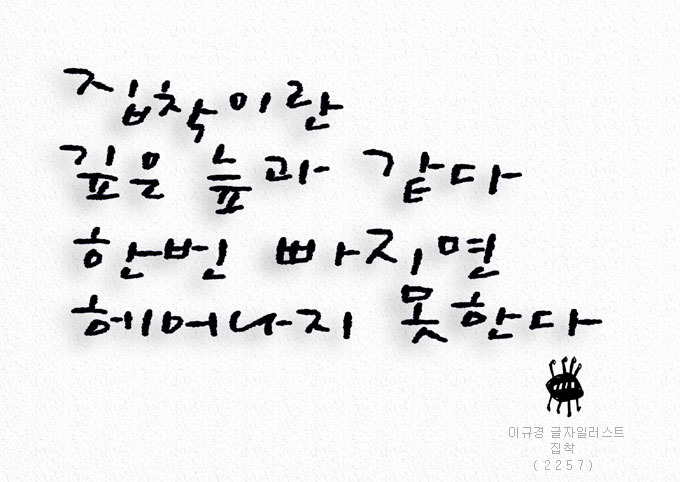 집착이란
깊은 늪과 같다
한번 빠지면
헤어나지 못한다
이규경 글자일러스트
집착
(2257)